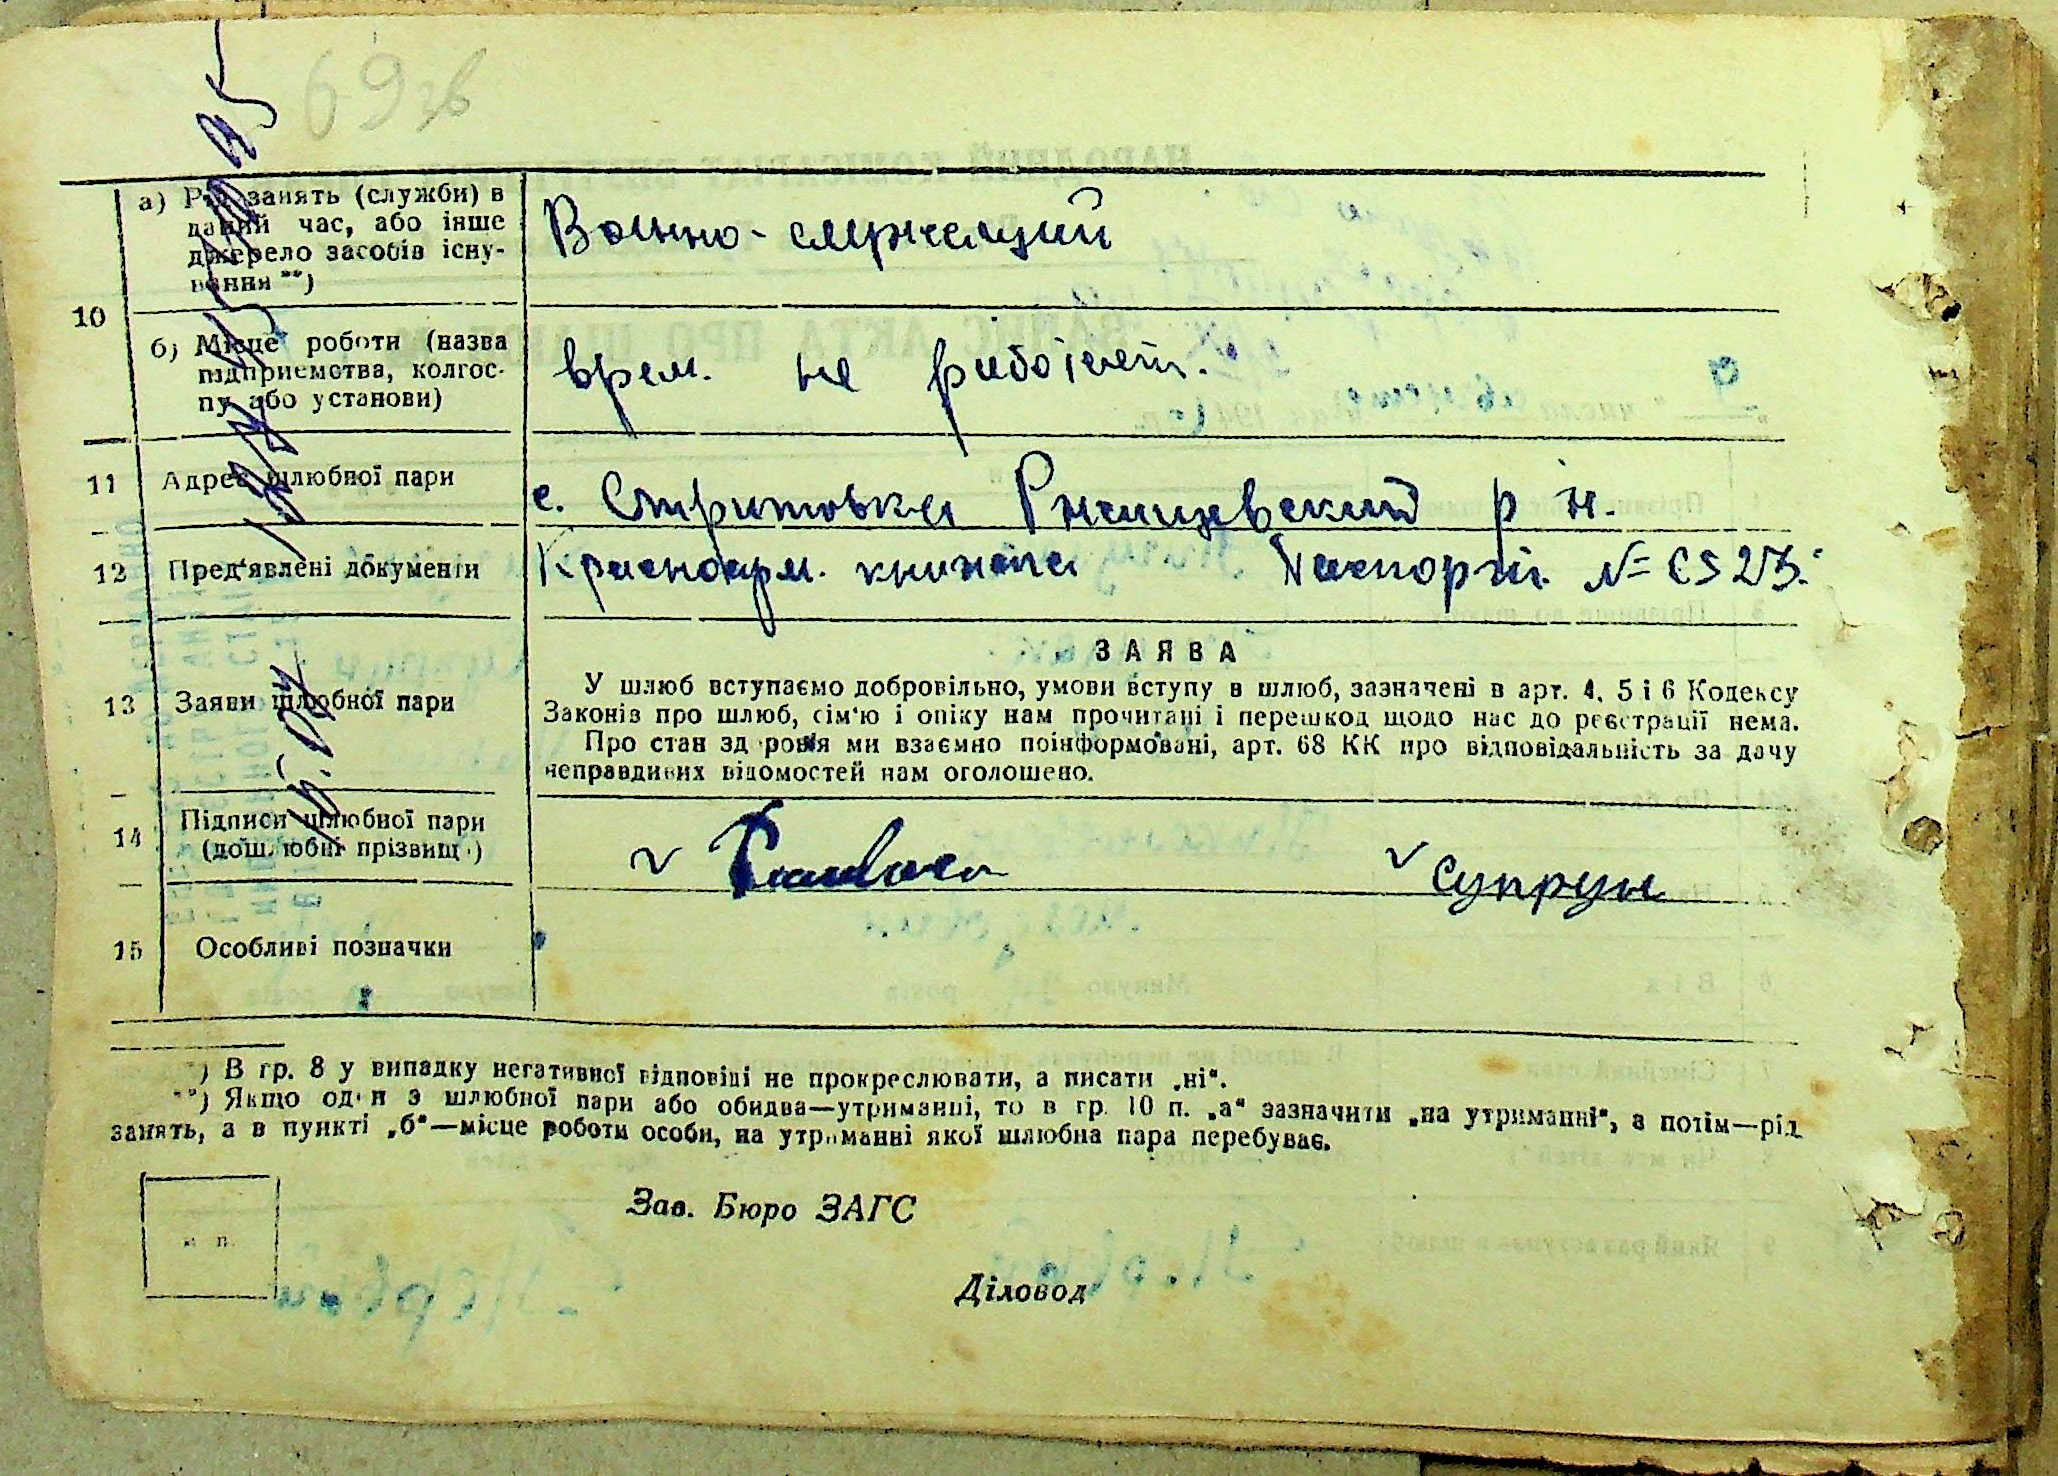 69зв
а) Рід занять (служби) в
даний час, або інше
джерело засобів існу-
вання **)
Воєнно-служащий
10
б) Місце роботи (назва
підприємства, колгос-
пу або установи)
врем. не работает.
11 Адреса шлюбної пари
с. Стритовка Ржищевский р н.
12 Пред'явлені документи
Красноарм. книжка Паспорт.
13 Заяви шлюбної пари
ЗАЯВА
У шлюб вступаємо добровільно, умови вступу в шлюб, зазначені в арт. 4, 5 і 6 Кодексу
Законів про шлюб, сім'ю і опіку нам прочитані і перешкод щодо нас до реєстрації нема.
Про стан здоров'я ми взаємно поінформовані, арт. 68 КК про відповідальність за дачу
неправдивих відомостей нам оголошено.
14 Підписи шлюбної пари
(дошлюбні прізвищ.)
Супрун
15 Особливі позначки
*) В гр. 8 у випадку негативної відповіді не прокреслювати, а писати „ні“.
**) Якщо один з шлюбної пари або обидва—утриманці, то в гр. 10 п. „а“ зазначити „на утриманні“, а потім—рід
занять, а в пункті „б“—місце роботи особи, на утриманні якої шлюбна пара перебуває.
м. п.
Зав. Бюро ЗАГС
Діловод